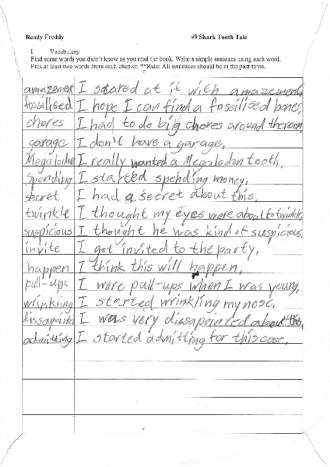 Ready Freddy #9 Shark Tooth Tale
1 Vocabulary
Find some words you didn't know as you read the book. Write a simple sentence using each word.
Pick at least two words from each chapter. **Rule: All sentences should be in the past tense.
amazement I stared at it with amazement.
fossilised I hope I can find a fossilised bones.
chores I had to do big chores around the room.
garage I don't have a garage.
Megalodon I really wanted a Megalodon tooth.
spending I started spending money.
secret I had a secret about this.
twinkle I thought my eyes were about to twinkle.
suspicious I thought he was kind of suspicious.
invite I got invited to the party.
happen I think this will happen.
pull-ups I wore pull-ups when I was young.
wrinkling I started wrinkling my nose.
I was very dissapointed about this.
admitting I started admitting for this case.